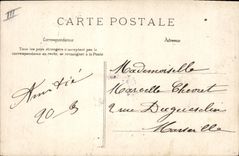 III
CARTE POSTALE
Correspondance
Adresse
Tous les pays étrangers n'acceptent pas
la correspondance au recto, se renseigner à la Poste
Amitié
20
Mademoiselle
Marcelle Chouet
2 rue Duguesclin
Marseille